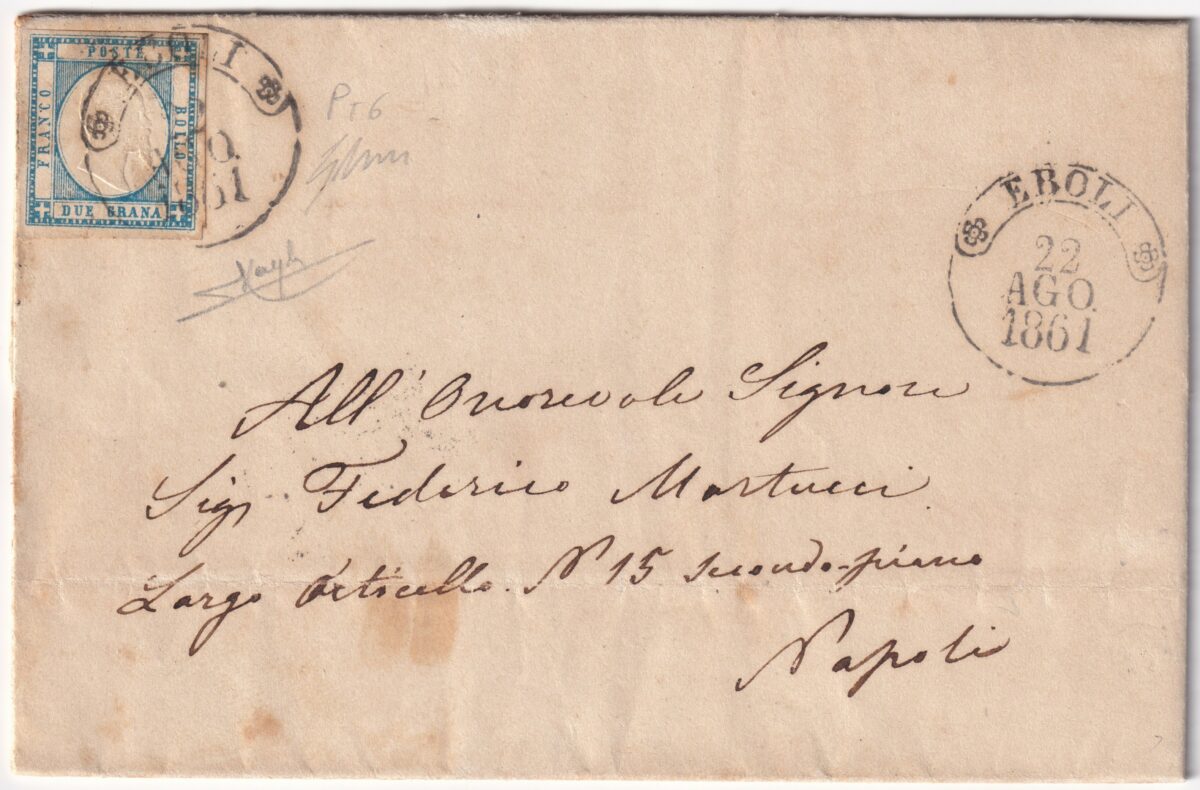 POSTE
FRANCO
BOLLO
DUE GRANA
EBOLI
AGO.
1861
EBOLI
22
AGO.
1861
All' Onorevole Signore
Sigr Federico Martucci
Largo Orticello N° 15 secondo piano
Napoli